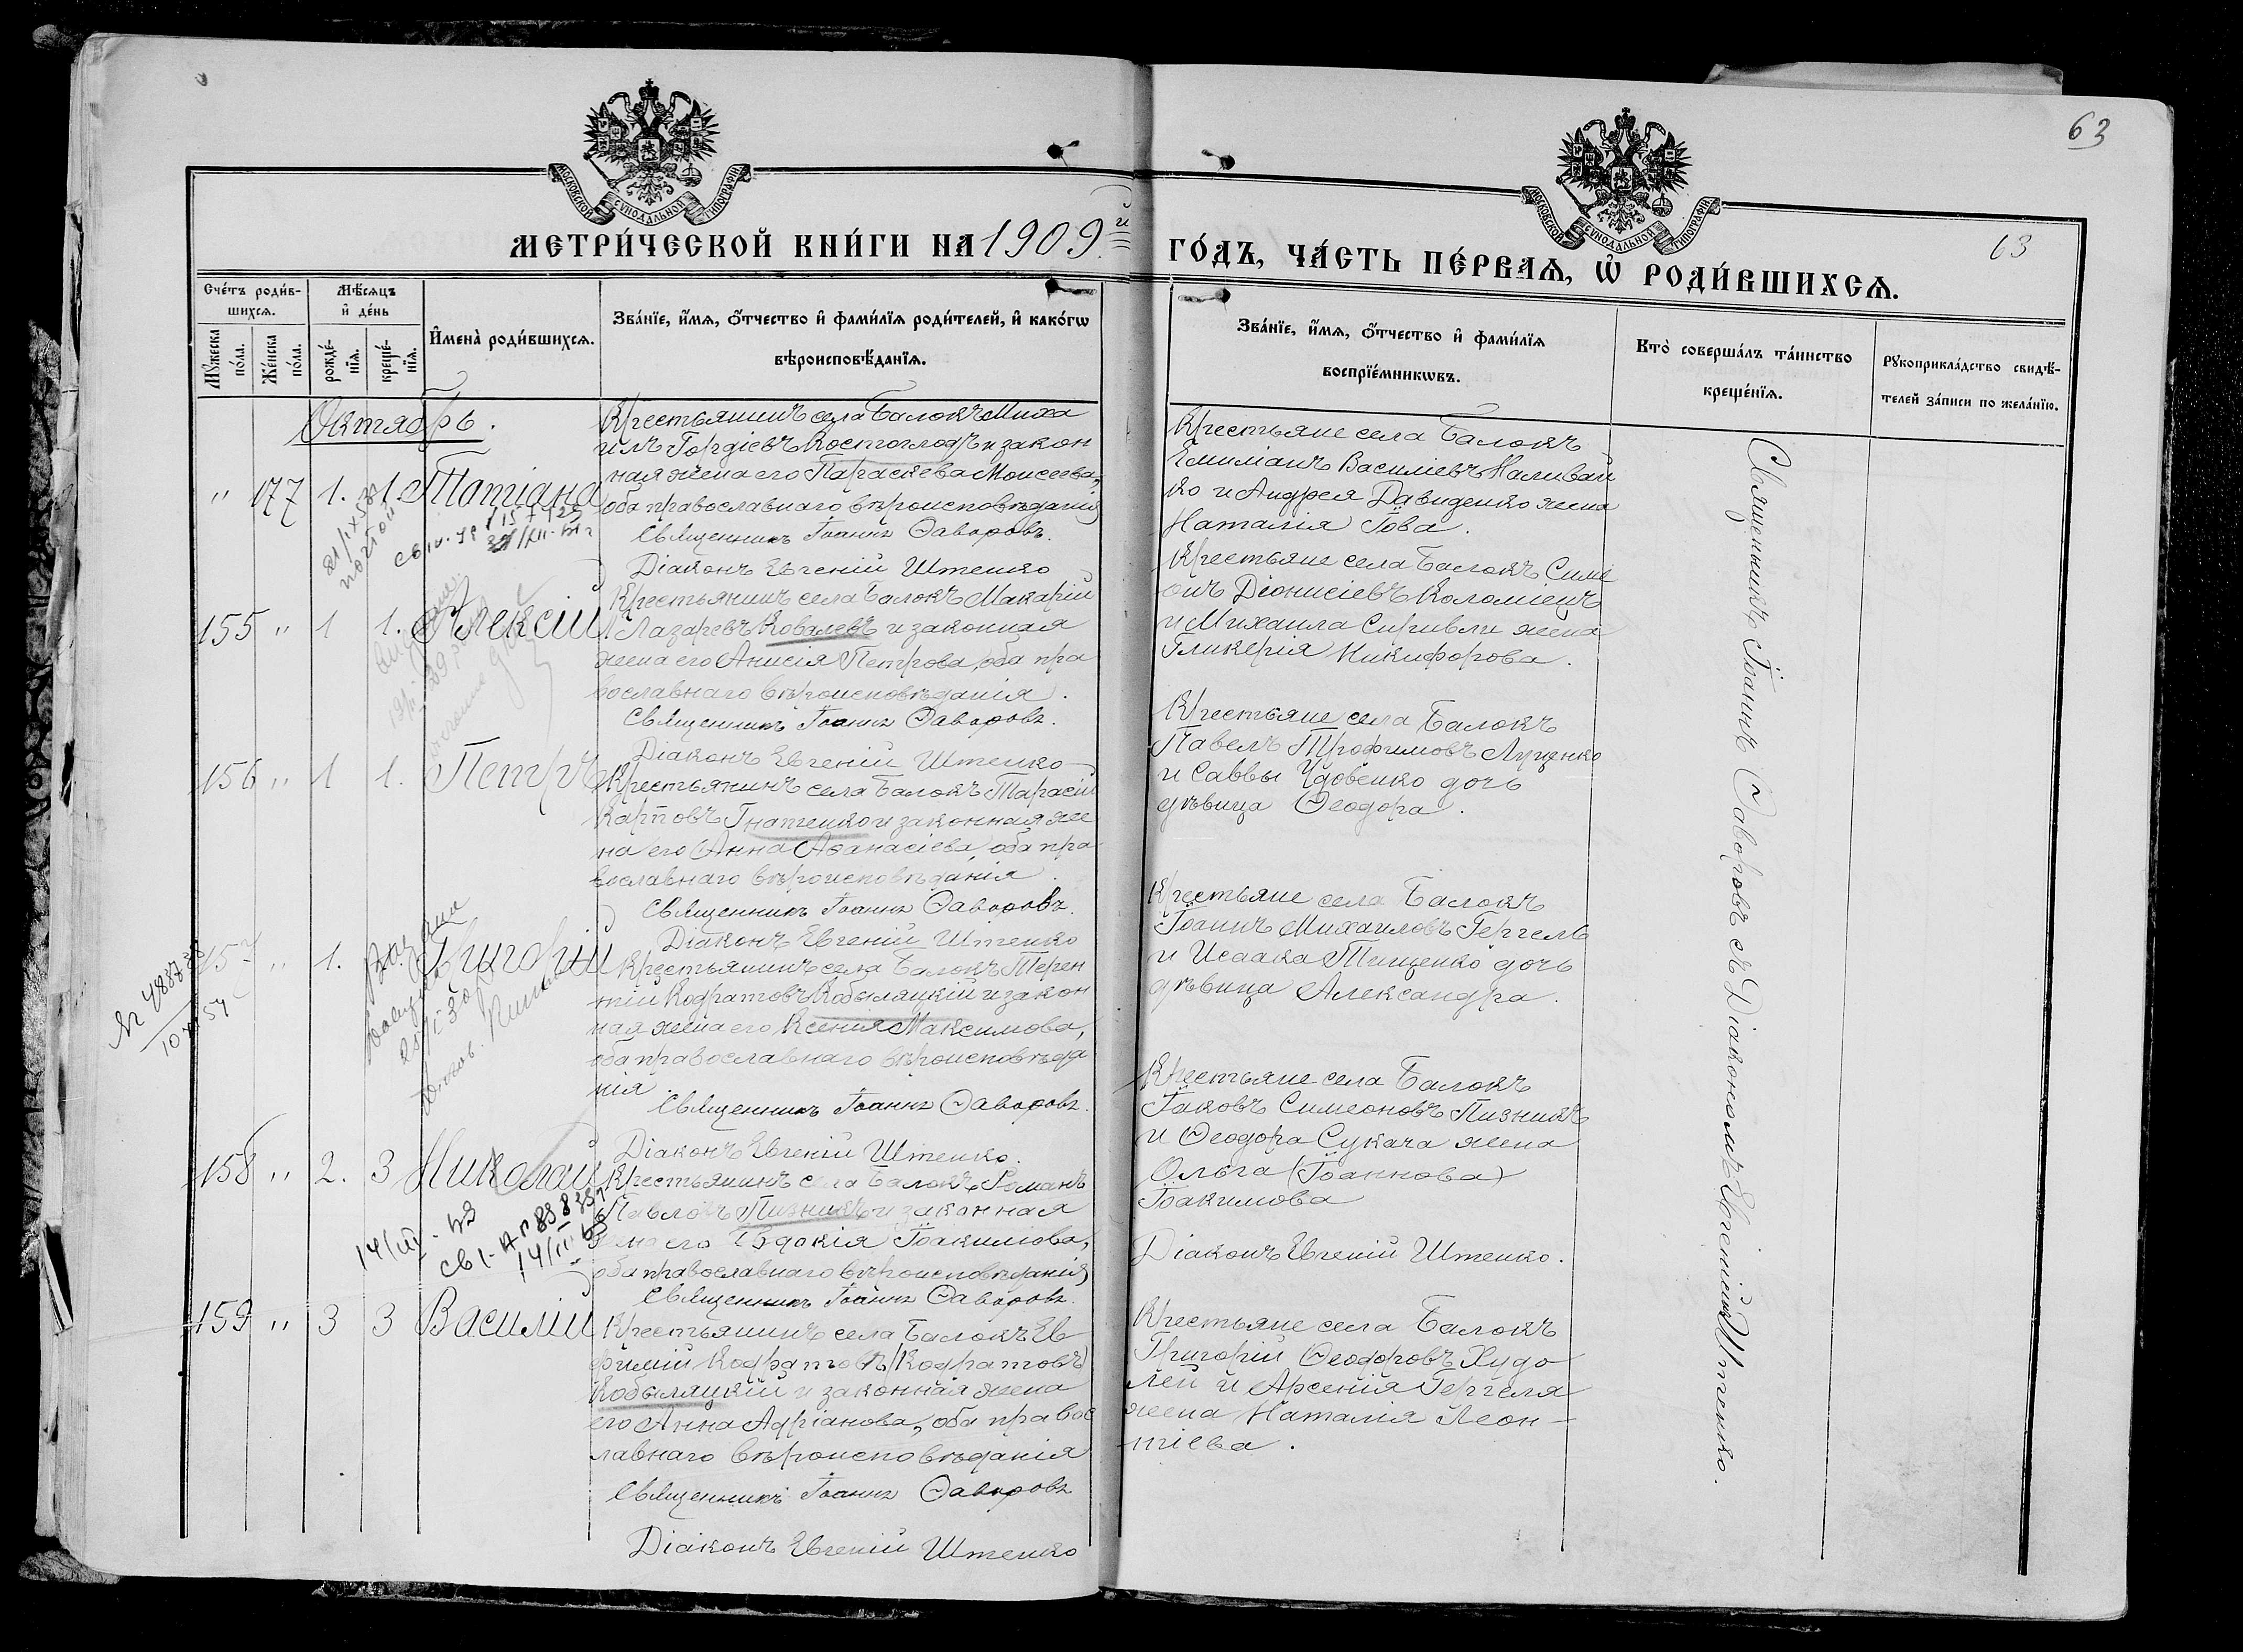 63
МОСКОВСКОЙ СѴНОДАЛЬНОЙ ТИПОГРАФІИ
МОСКОВСКОЙ СѴНОДАЛЬНОЙ ТИПОГРАФІИ
МЕТРИ́ЧЕСКОЙ КНИ́ГИ НА 1909й ГО́ДЪ, ЧА́СТЬ ПЕ́РВАѦ, Ѽ РОДИ́ВШИХСѦ.
63
Сче́тъ роди́в-
шихсѧ.
Мѣ́сѧцъ
и҆ де́нь
Мꙋ́жеска по́ла.
Же́нска по́ла.
рожде́-
нїѧ.
креще́-
нїѧ.
И҆мена̀ роди́вшихсѧ.
Зва́нїе, и҆́мѧ, ѻ҆́тчество и҆ фами́лїѧ роди́телей, и҆ како́гѡ
вѣроисповѣ́данїѧ.
Зва́нїе, и҆́мѧ, ѻ҆́тчество и҆ фами́лїѧ
воспрїе́мникѡвъ.
Кто̀ соверша́лъ та́инство
креще́нїѧ.
Рꙋкоприкла́дство свидѣ́-
телей за́писи по жела́нїю.
Октябрь.
" 177 1. 1. Татіана
Крестьянинъ села Балокъ Миха
илъ Гордіевъ Костоглодъ и закон
ная жена его Параскева Моисеева,
оба православнаго вѣроисповѣданія
Священникъ Іоаннъ Ѳаворовъ.
Діаконъ Евгеній Штепко
Крестьяне села Балокъ
Емиліанъ Василіевъ Наливай
ко и Андрея Давиденко жена
Наталія Іова.
почтой
155 " 1 1. Алексій
Крестьянинъ села Балокъ Макарій
Лазаревъ Ковалевъ и законная
жена его Анисія Петрова, оба пра
вославнаго вѣроисповѣданія.
Священникъ Іоаннъ Ѳаворовъ.
Діаконъ Евгеній Штепко
Крестьяне села Балокъ Симе
онъ Діонисіевъ Коломіецъ
и Михаила Сиривли жена
Гликерія Никифорова.
156 " 1 1. Петръ
Крестьянинъ села Балокъ Тарасій
Карповъ Гнатенко и законная же
на его Анна Аѳанасіева, оба пра
вославнаго вѣроисповѣданія.
Священникъ Іоаннъ Ѳаворовъ.
Діаконъ Евгеній Штепко
Крестьяне села Балокъ
Павелъ Трофимовъ Луценко
и Саввы Удовенко дочь
дѣвица Ѳеодора.
157 " 1. Григорій
Крестьянинъ села Балокъ Терен
тій Кодратовъ Кобыляцкій и закон
ная жена его Ксенія Максимова,
оба православнаго вѣроисповѣда
нія
Священникъ Іоаннъ Ѳаворовъ.
Діаконъ Евгеній Штепко.
Крестьяне села Балокъ
Іоаннъ Михаиловъ Гергель
и Исаака Тищенко дочь
дѣвица Александра.
158 " 2. 3 Николай
Крестьянинъ села Балокъ Романъ
Павловъ Пизникъ и законная
жена его Евдокія Іоакимова,
оба православнаго вѣроисповѣданія
Священникъ Іоаннъ Ѳаворовъ.
Крестьяне села Балокъ
Іаковъ Симеоновъ Пизникъ
и Ѳеодора Сукача жена
Ольга (Іоаннова)
Іоакимова
Діаконъ Евгеній Штепко.
159 " 3 3 Василій
Крестьянинъ села Балокъ Ев
фимій Кодратовъ (Кодратовъ)
Кобыляцкій и законная жена
его Анна Адріанова, оба правос
лавнаго вѣроисповѣданія
Священникъ Іоаннъ Ѳаворовъ
Діаконъ Евгеній Штепко
Крестьяне села Балокъ
Григорій Ѳеодоровъ Худо
лей и Арсенія Гергеля
жена Наталія Леон-
тіева.
Священникъ Іоаннъ Ѳаворовъ съ Діакономъ Евгеніемъ Штепко.